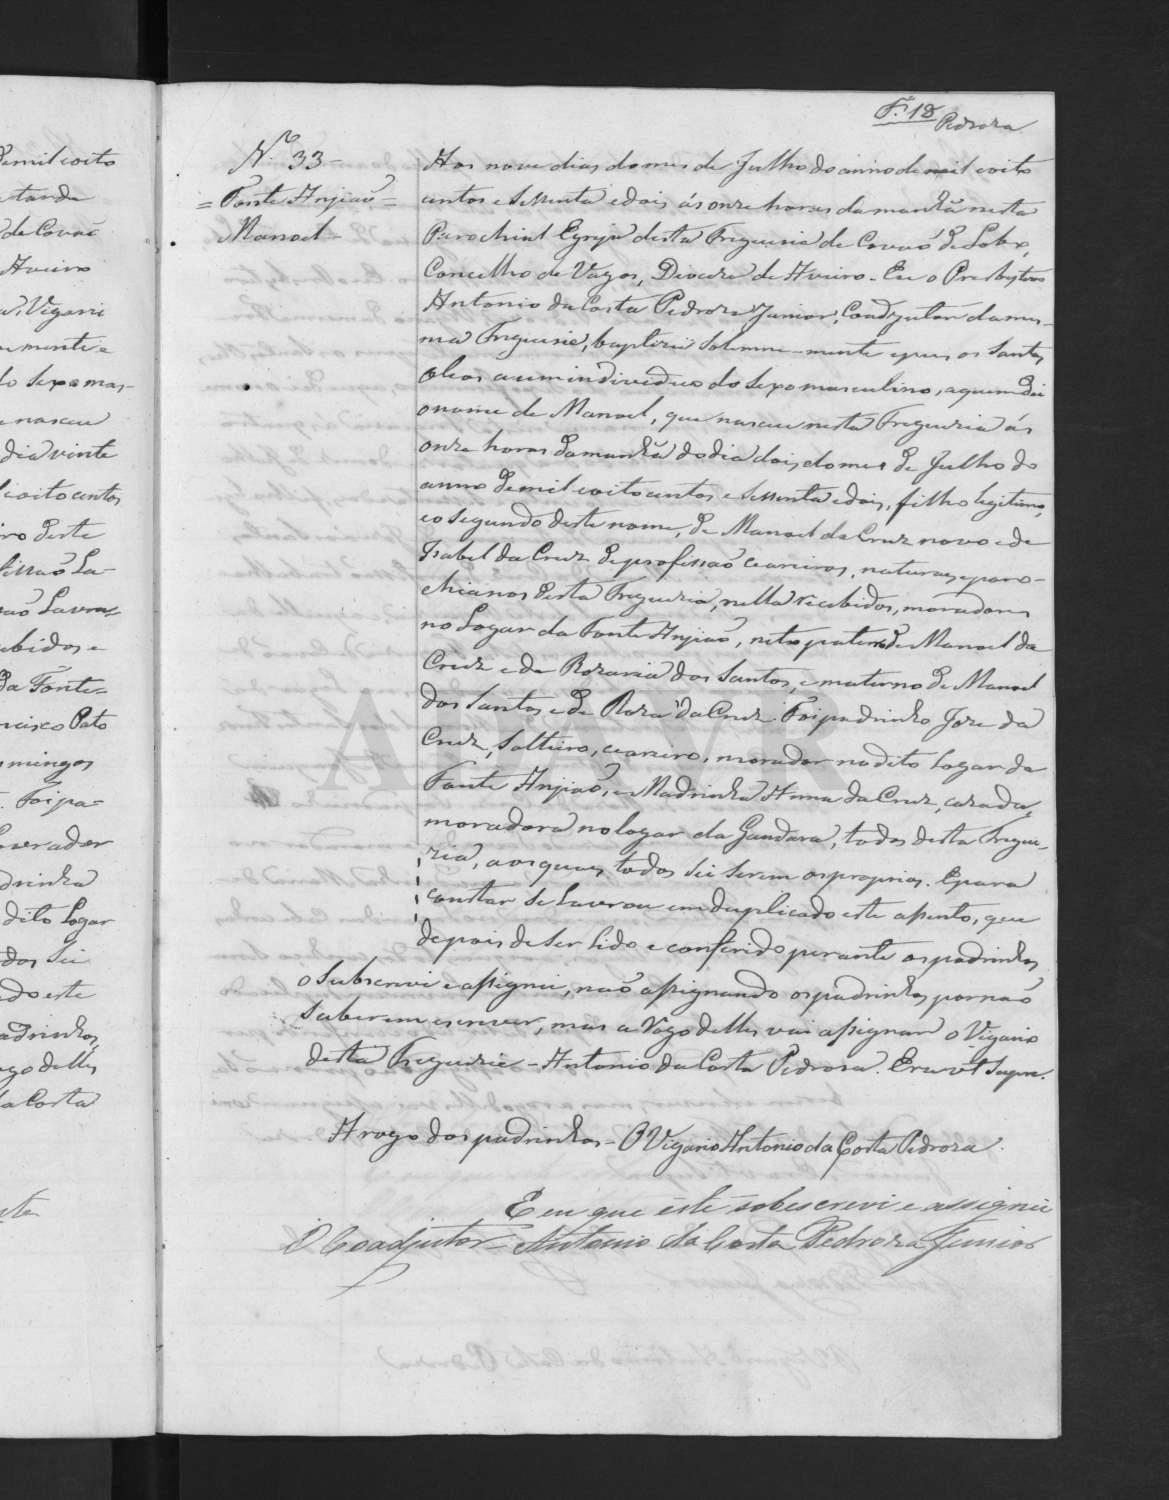 F. 18 Pedroza
N.º 33 -
= Fonte Anjiaõ =
Manoel -
Aos nove dias do mes de Julho do anno de mil e oito
centos e Sessenta e dois ás onze horas da manhã nesta
Parochial Egreja desta Freguesia de Covaõ de Lobo,
Concelho de Vagos, Diocese de Aveiro - Eu o Presbytero
Antonio da Costa Pedroza Junior, Coadjutor da mes-
ma Freguesia, baptizei Solemne-mente e pus os Santos
Oleos a um individuo do Sexo masculino, a quem dei
o nome de Manoel, que nasceu nesta Freguezia ás
onze horas da manhã do dia dois do mes de Julho do
anno de mil e oitocentos e Sessenta e dois, filho legitimo,
e o segundo deste nome, de Manoel da Cruz novo e de
Isabel da Cruz de profissaõ ceareiros, naturaes e paro-
chianos desta Freguezia, nella recebidos, moradores
no Logar da Fonte Anjiaõ, neto paterno de Manoel da
Cruz e de Rozaria dos Santos, e materno de Manoel
dos Santos e de Roza da Cruz. Foi padrinho Joze da
Cruz, Solteiro, ceareiro, morador no dito Logar da
Fonte Anjiaõ, e Madrinha Anna da Cruz, cazada,
moradora no logar da Gandara, todos desta Fregue-
zia, aos quaes todos Sei Serem os proprios. E para
constar Se Lavrou em duplicado este assento, que
depois de Ser Lido e conferido perante os padrinhos,
o Subscrevi e assignei, naõ assignando os padrinhos por naõ
Saberem escrever, mas a Rogo delles vai assignar o Vigario
desta Freguezia - Antonio da Costa Pedroza. Era ut Supra.
A rogo dos padrinhos - O Vigario Antonio da Costa Pedroza.
E eu que este sobescrevi e assignei
O Coadjutor - Antonio da Costa Pedroza Junior
ADAVR
de mil e oito
tarde
de Covaõ
Aveiro
Vigario
mente e
do Sexo mas-
nasceu
dia vinte
oito centos
deste
La-
Lavra-
bidos e
da Fonte
Pato
mingos
Foi pa-
drinha
dito Logar
dos Sei
do este
adrinhos,
ogo delles
da Costa